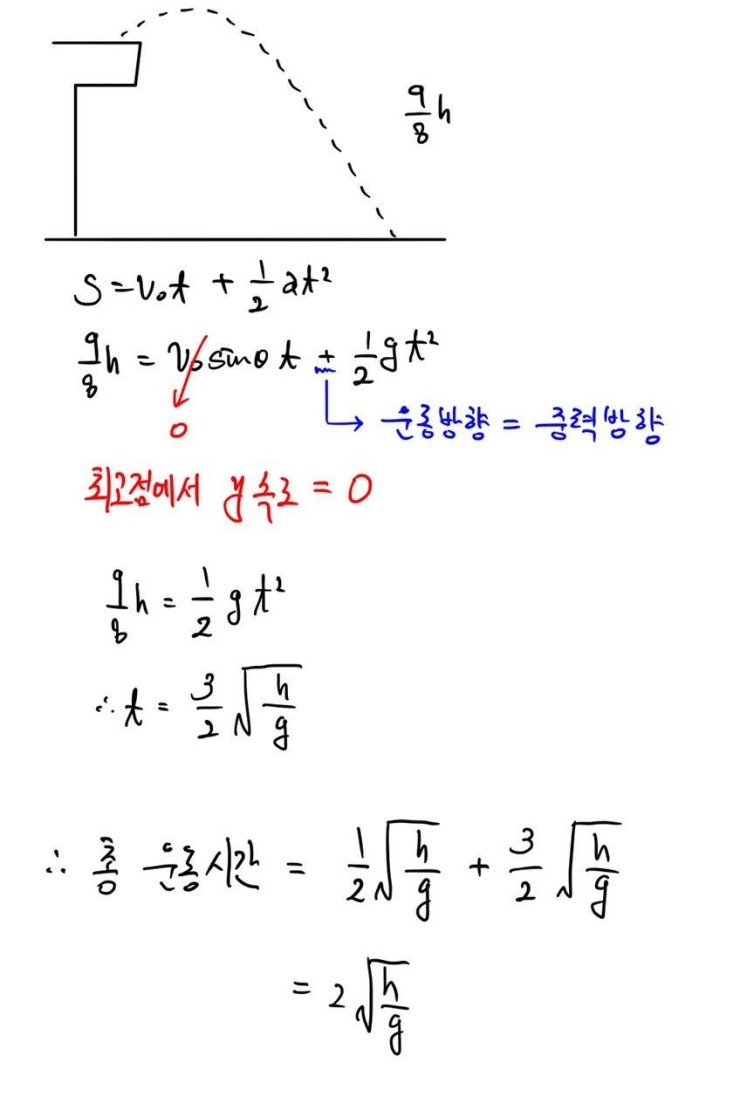 9/8 h
S = V₀t + 1/2 at²
9/8 h = V₀sinθ t + 1/2 gt²
0
→ 운동방향 = 중력방향
최고점에서 y속도 = 0
9/8 h = 1/2 gt²
∴ t = 3/2 √(h/g)
∴ 총 운동시간 = 1/2 √(h/g) + 3/2 √(h/g)
= 2√(h/g)